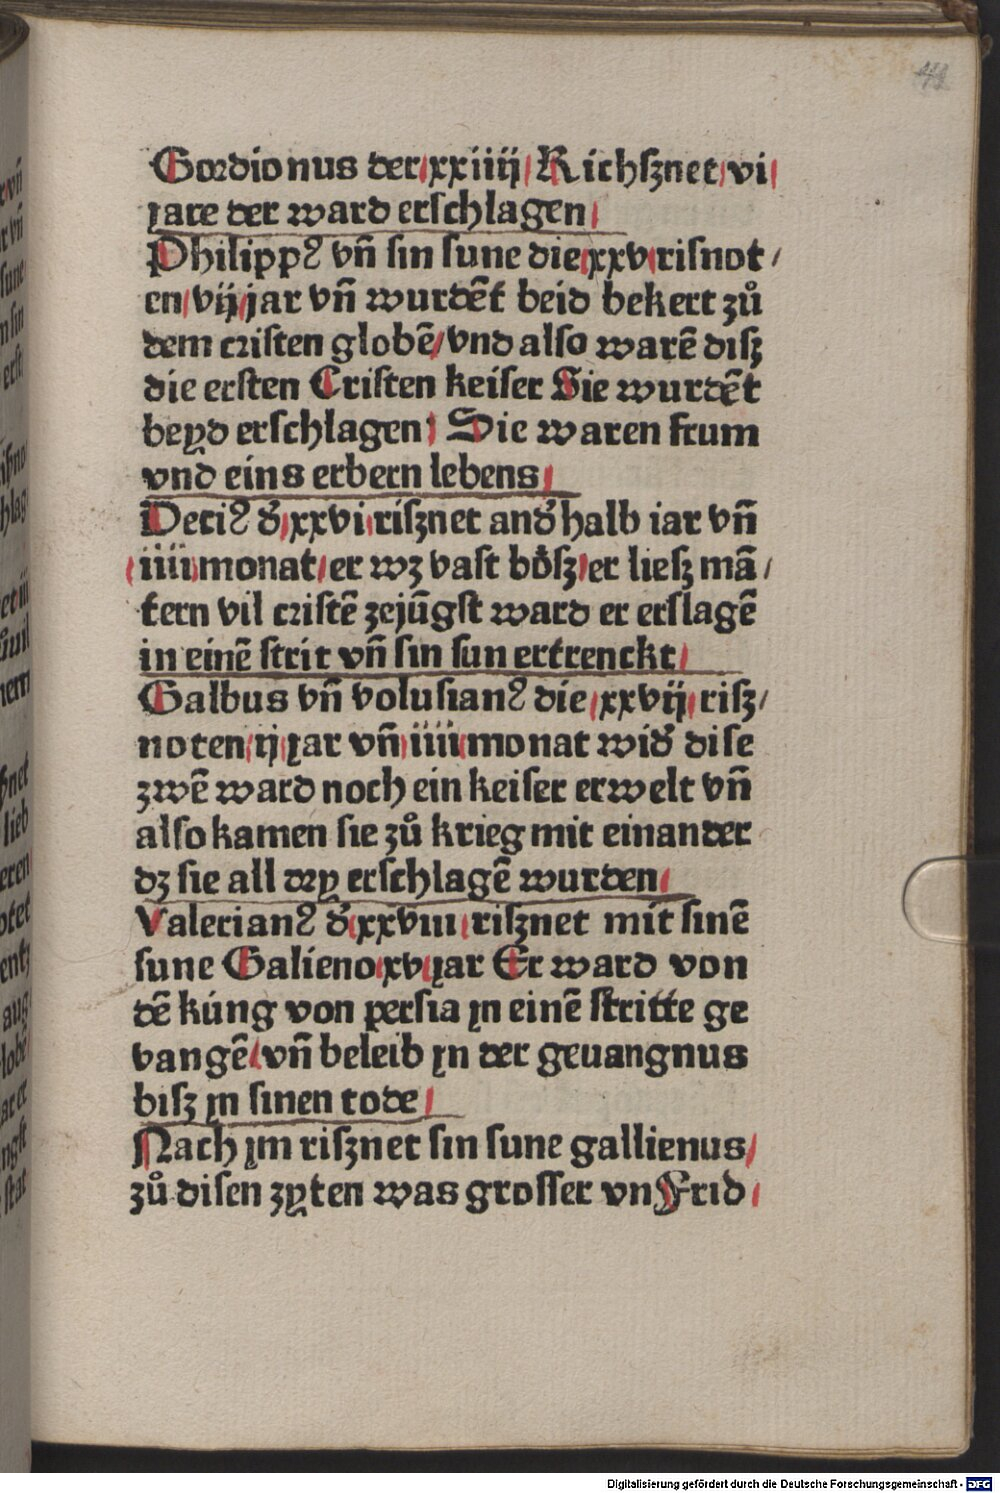 44
Gordionus der xxiiij Richſznet vi
jare der ward erſchlagen
Philippꝰ vn̄ ſin ſune die xxv riſnot/
en vij jar vn̄ wurdēt beid bekert zů
dem criſten globē/ vnd alſo warē diſz
die erſten Criſten keiſer Sie wurdēt
beyd erſchlagen Sie waren frum
vnd eins erbern lebens
Deciꝰ d̓ xxvi riſznet and̓halb iar vn̄
iiii monat/ er wz vaſt böſz er lieſz mā/
tern vil criſtē zejūgſt ward er erſlagē
in einē ſtrit vn̄ ſin ſun ertrenckt
Galbus vn̄ voluſianꝰ die xxvij riſz/
noten ij jar vn̄ iiii monat wid̓ diſe
zwē ward noch ein keiſer erwelt vn̄
alſo kamen ſie zů krieg mit einander
dz ſie all dry erſchlagē wurden
Valerianꝰ d̓ xxviii riſznet mit ſinē
ſune Galieno xv jar Er ward von
dē kúng von perſia jn einē ſtritte ge
vangē vn̄ beleib jn der geuangnus
biſz jn ſinen tode
Nach jm riſznet ſin ſune gallienus
zů diſen zyten was groſſer vnFrid
Digitalisierung gefördert durch die Deutsche Forschungsgemeinschaft - DFG